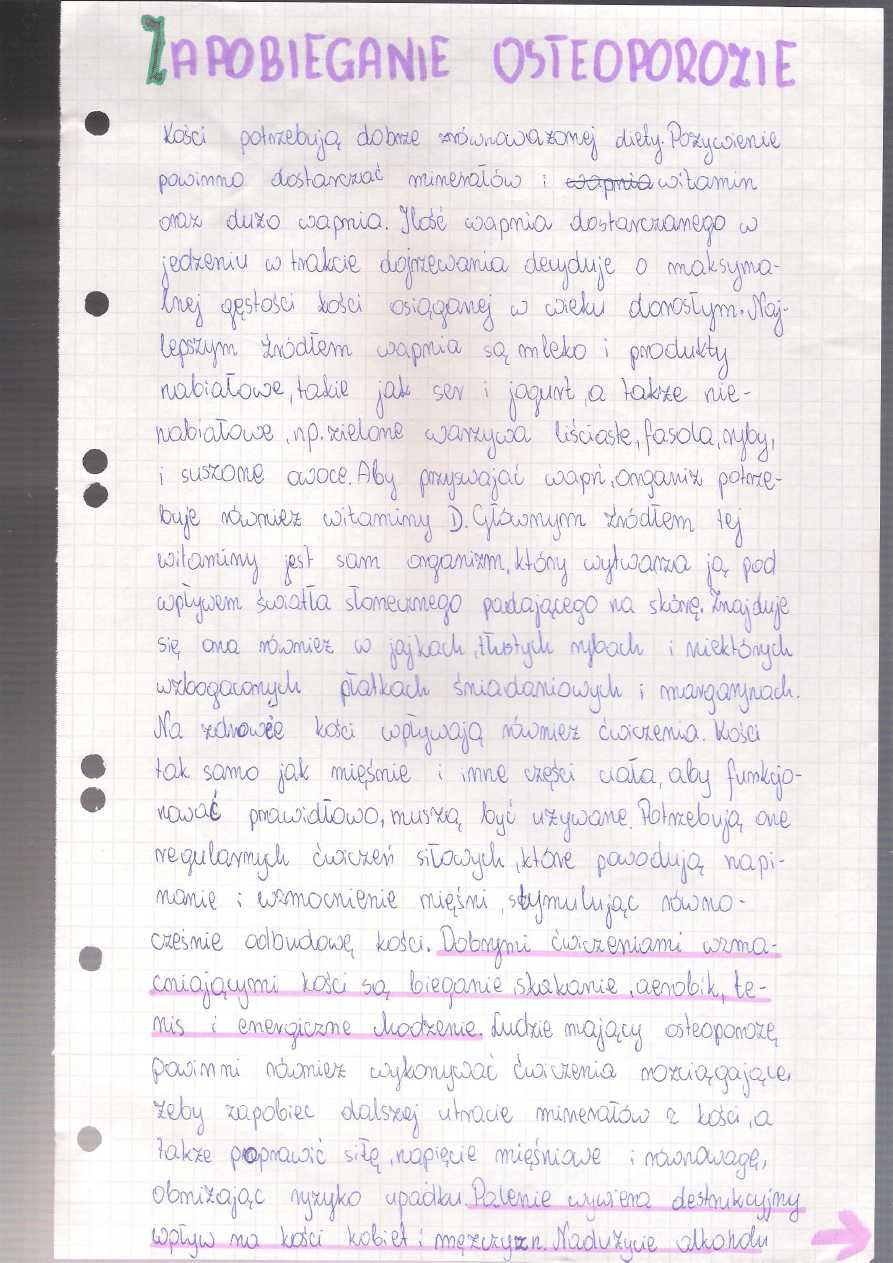 ZAPOBIEGANIE OSTEOPOROZIE
Kości potrzebują dobrze zrównoważonej diety. Pożywienie
powinno dostarczać minerałów i wapnia witamin
oraz dużo wapnia. Ilość wapnia dostarczanego w
jedzeniu w trakcie dojrzewania decyduje o maksyma-
lnej gęstości kości osiąganej w wieku dorosłym. Naj-
lepszym źródłem wapnia są mleko i produkty
nabiałowe, takie jak ser i jogurt, a także nie-
nabiałowe, np. zielone warzywa liściaste, fasola, ryby,
i suszone owoce. Aby przyswajać wapń, organizm potrze-
buje również witaminy D. Głównym źródłem tej
witaminy jest sam organizm, który wytwarza ją pod
wpływem światła słonecznego padającego na skórę. Znajduje
się ona również w jajkach, tłustych rybach i niektórych
wzbogaconych płatkach śniadaniowych i margarynach.
Na zdrowie kości wpływają również ćwiczenia. Kości
tak samo jak mięśnie i inne części ciała, aby funkcjo-
nować prawidłowo, muszą być używane. Potrzebują one
regularnych ćwiczeń siłowych, które powodują napi-
nanie i wzmocnienie mięśni, stymulując równo-
cześnie odbudowę kości. Dobrymi ćwiczeniami wzma-
cniającymi kości są bieganie, skakanie, aerobik, te-
nis i energiczne chodzenie. Ludzie mający osteoporozę
powinni również wykonywać ćwiczenia rozciągające,
żeby zapobiec dalszej utracie minerałów z kości, a
także poprawić siłę, napięcie mięśniowe i równowagę,
obniżając ryzyko upadku. Palenie wywiera destrukcyjny
wpływ na kości kobiet i mężczyzn. Nadużycie alkoholu